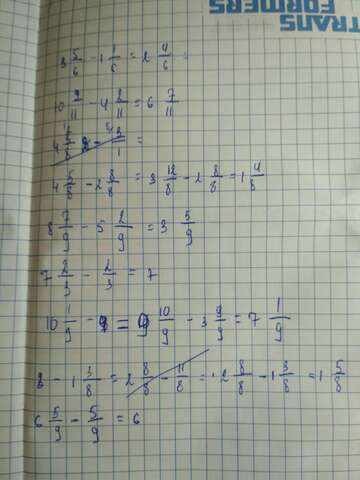 TRANS
FORMERS
3 5/6 - 1 1/6 = 2 4/6 =
10 9/11 - 4 2/11 = 6 7/11
4 5/8 - 2 8/8 = 3 12/8 - 2 8/8 = 1 4/8
8 7/9 - 5 2/9 = 3 5/9
7 2/3 - 2/3 = 7
10 1/9 - = 10/9 - 3 9/9 = 7 1/9
3 - 1 3/8 = 2 8/8 - 11/8 = 2 8/8 - 1 3/8 = 1 5/8
6 5/9 - 5/9 = 6